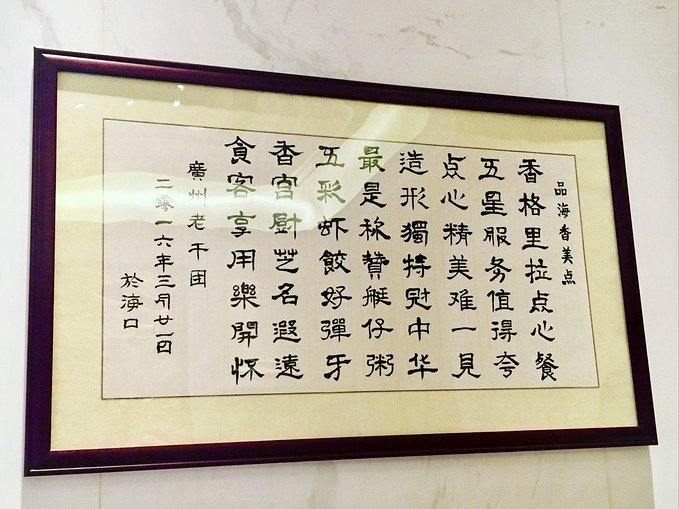 品海香美点
香格里拉点心餐
五星服务值得夸
点心精美难一见
造形獨特冠中华
最是称贊艇仔粥
五彩虾餃好彈牙
香宫厨芝名遐遠
食客享用樂開怀
廣州老干团
二零一六年三月廿一日
於海口